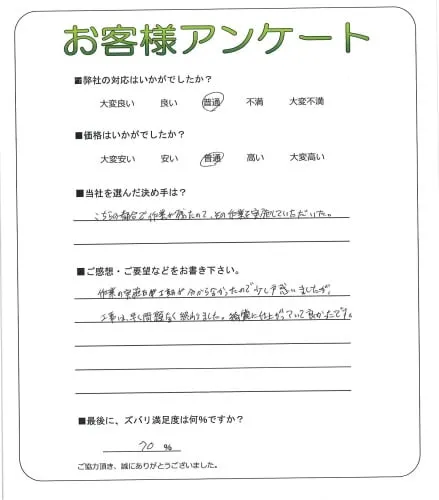 お客様アンケート
■弊社の対応はいかがでしたか？
大変良い 良い 普通 不満 大変不満
■価格はいかがでしたか？
大変安い 安い 普通 高い 大変高い
■当社を選んだ決め手は？
こちらの都合で作業が残ったので、その作業を実施していただいた。
■ご感想・ご要望などをお書き下さい。
作業の実施日が分からなかったので少し戸惑いましたが、
工事は、早く問題なく終わりました。綺麗に仕上がっていて良かったです。
■最後に、ズバリ満足度は何％ですか？
70 ％
ご協力頂き、誠にありがとうございました。